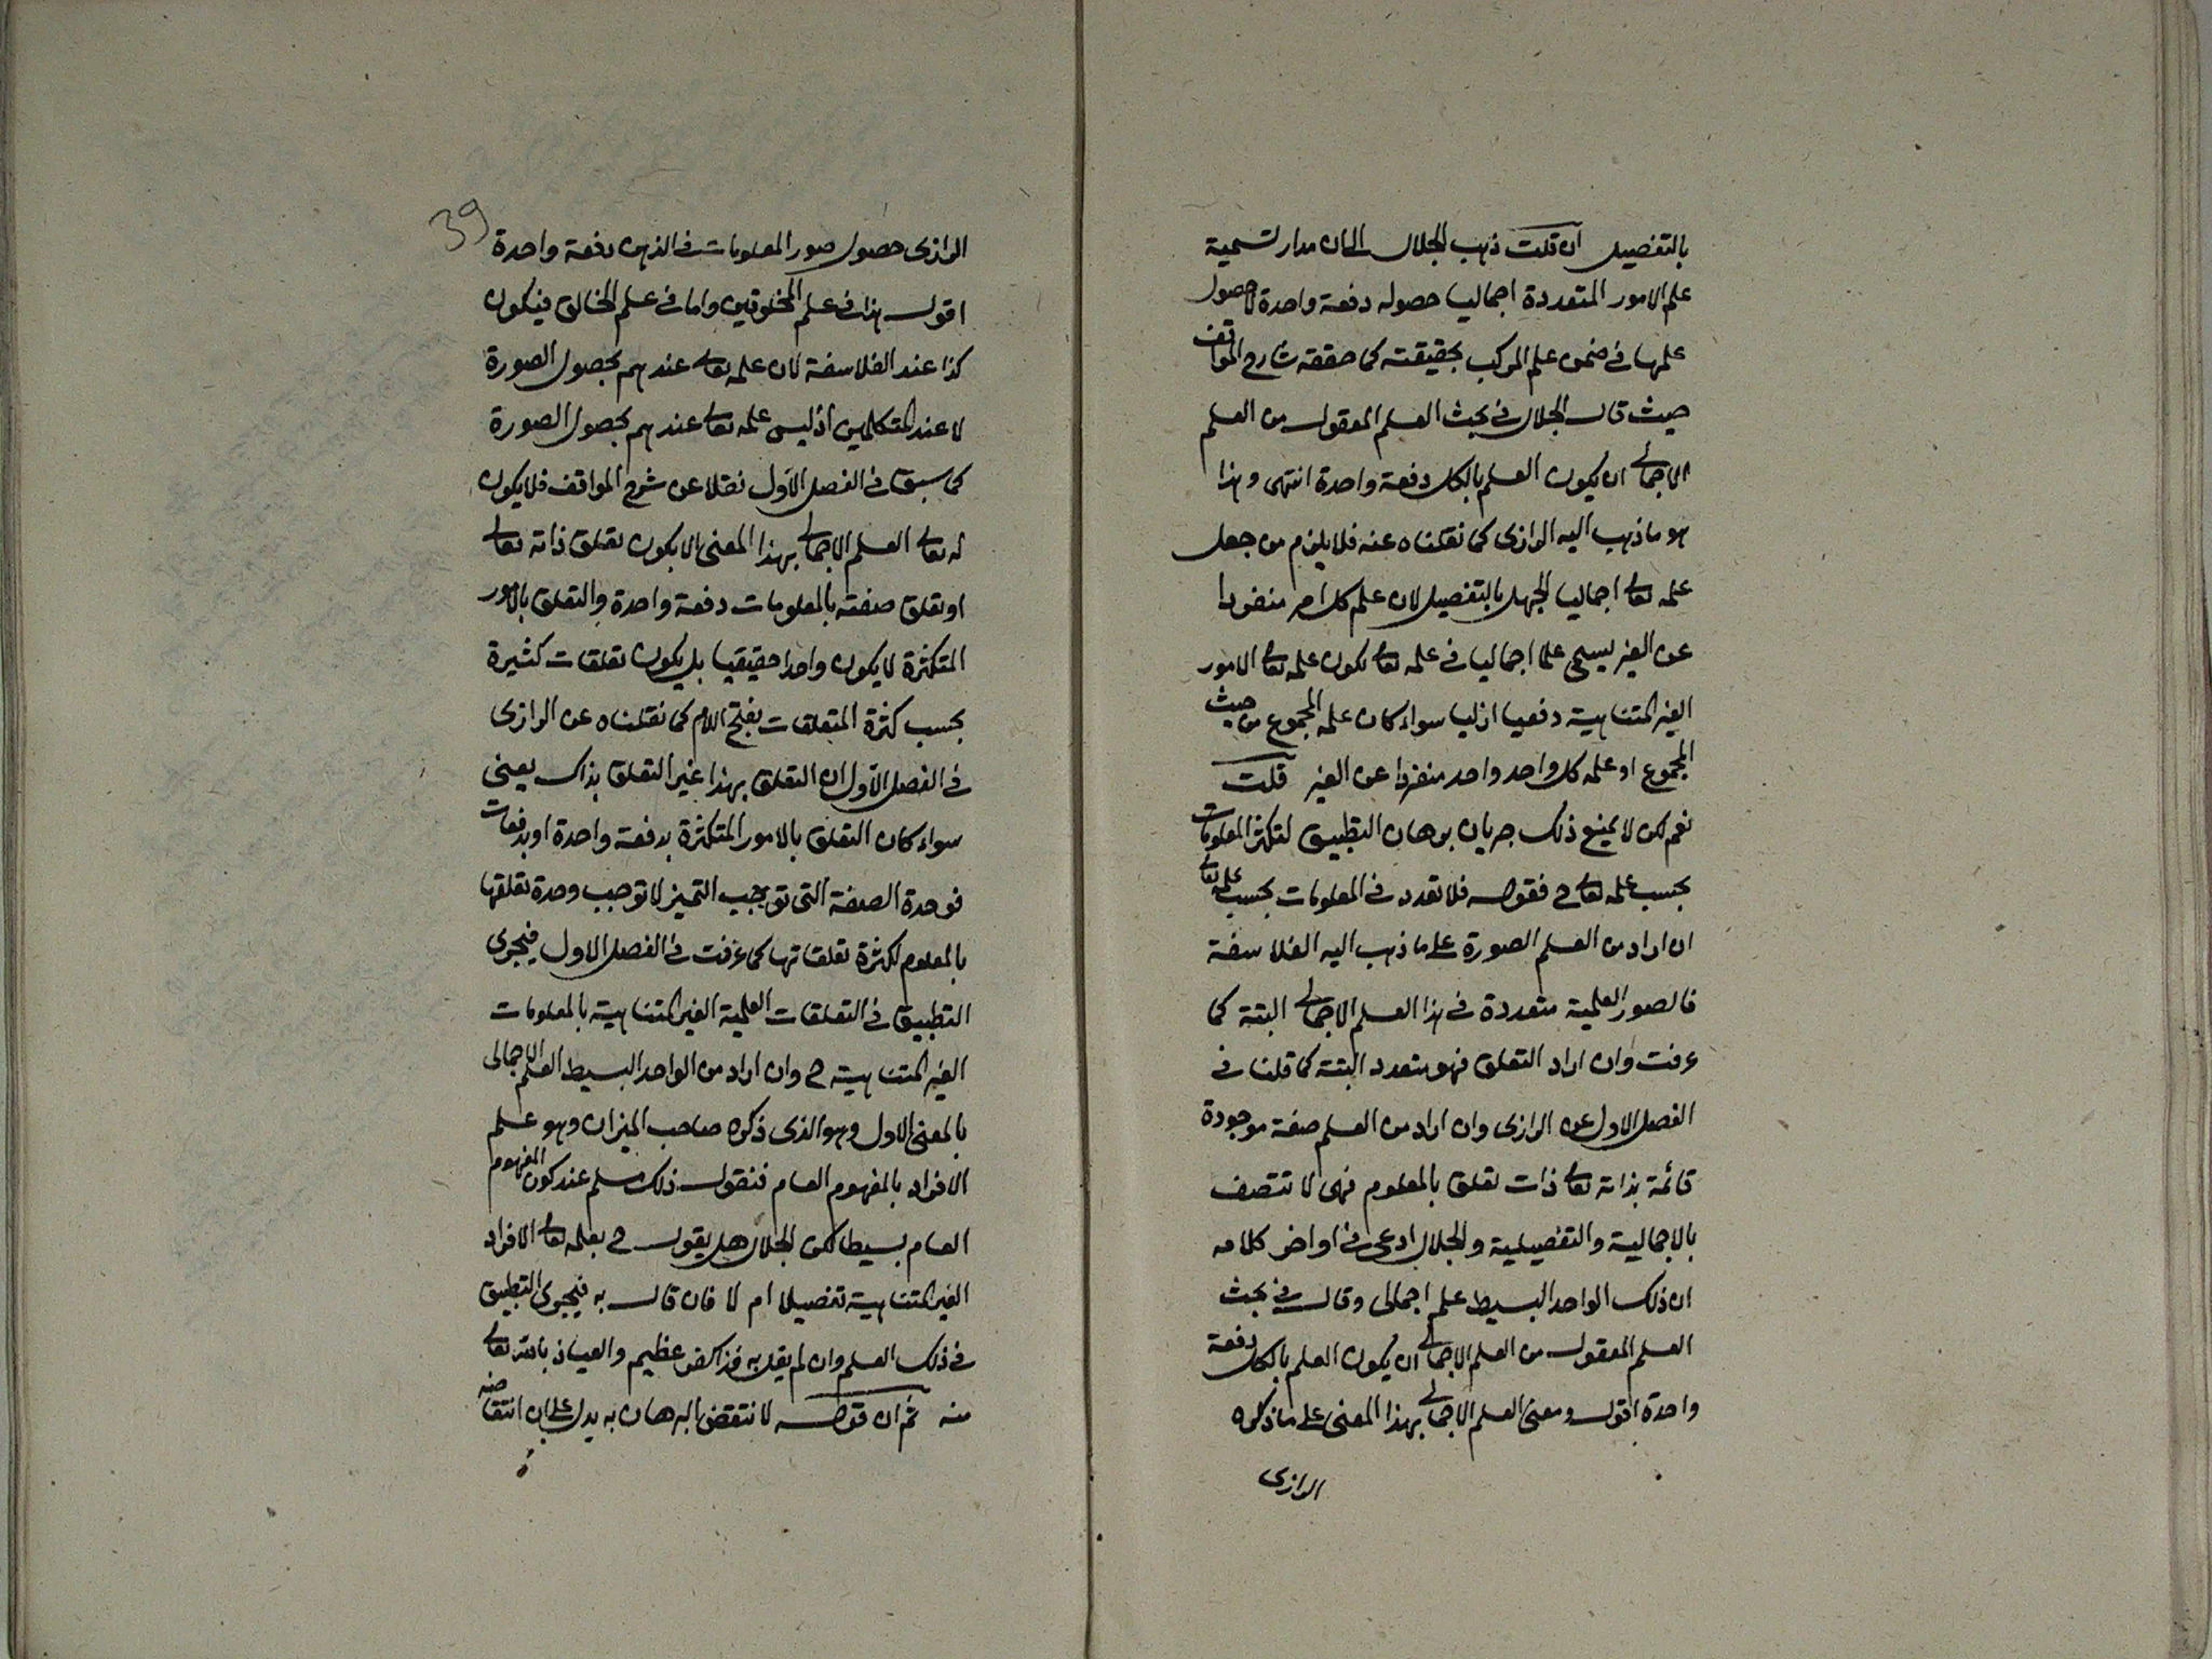 بالتفصيل ان قلت ذهب الجلال الى ان مدار تسمية
علم الامور المتعددة اجماليا حصوله دفعة واحدة لا حصول
علمها في ضمن علم المركب بحقيقته كما حققه شارح المواقف
حيث قال الجلال في بحث العلم المعقول من العلم
الاجمالي ان يكون العلم بالكل دفعة واحدة انتهى وهذا
هو ما ذهب اليه الرازى كما نقلناه عنه فلا يلزم من جعل
علمه تعالى اجماليا الجهل بالتفصيل لان علم كل امر منفردا
عن الغير يسمى علما اجماليا في علمه تعالى لكون علمه تعالى الامور
الغير المتناهية دفعيا ازليا سواء كان علمه المجموع من حيث
المجموع او علمه كل واحد واحد منفردا عن الغير قلت
نعم لكن لا يمنع ذلك جريان برهان التطبيق لتكثر المعلومات
بحسب علمه تعالى ح فقوله فلا تعدد في المعلومات بحسب علمه تعالى
ان اراد من العلم الصورة على ما ذهب اليه الفلاسفة
فالصور العلمية متعددة في هذا العلم الاجمالي البتة كما
عرفت وان اراد التعلق فهو متعدد البتة كما قلنا في
الفصل الاول عن الرازى وان اراد من العلم صفة موجودة
قائمة بذاته تعالى ذات تعلق بالمعلوم فهى لا تتصف
بالاجمالية والتفصيلية والجلال ادعى في اواخر كلامه
ان ذلك الواحد البسيط علم اجمالى وقال في بحث
العلم المعقول من العلم الاجمالي ان يكون العلم بالكل دفعة
واحدة اقول ومعنى العلم الاجمالي بهذا المعنى على ما ذكره
الرازى
39
الرازى حصول صور المعلومات في الذهن دفعة واحدة
اقول هذا في علم المخلوقين واما في علم الخالق فيكون
كذا عند الفلاسفة لان علمه تعالى عندهم بحصول الصورة
لا عند المتكلمين اذ ليس علمه تعالى عندهم بحصول الصورة
كما سبق في الفصل الاول نقلا عن شرح المواقف فلا يكون
له تعالى العلم الاجمالي بهذا المعنى الا بكون تعلق ذاته تعالى
او تعلق صفته بالمعلومات دفعة واحدة والتعلق بالامور
المتكثرة لا يكون واحدا حقيقيا بل يكون تعلقات كثيرة
بحسب كثرة المتعلقات بفتح اللام كما نقلناه عن الرازى
في الفصل الاول ان التعلق بهذا غير التعلق بذاك يعنى
سواء كان التعلق بالامور المتكثرة بدفعة واحدة او بدفعات
فوحدة الصفة التى توجب التميز لا توجب وحدة تعلقها
بالمعلوم لكثرة تعلقاتها كما عرفت في الفصل الاول فيجرى
التطبيق في التعلقات العلمية الغير المتناهية بالمعلومات
الغير المتناهية ح وان اراد من الواحد البسيط العلم الاجمالى
بالمعنى الاول وهو الذى ذكره صاحب الميزان وهو علم
الافراد بالمفهوم العام فنقول ذلك مسلم عند كون المفهوم
العام بسيطا لكن الجلال هل يقول ح بعلمه تعالى الافراد
الغير المتناهية تفصيلا ام لا فان قال به فيجرى التطبيق
في ذلك العلم وان لم يقل به فذا كفر عظيم والعياذ بالله تعالى
منه ثم ان قوله لا نتقض البرهان به يدل على ان انتقاضه